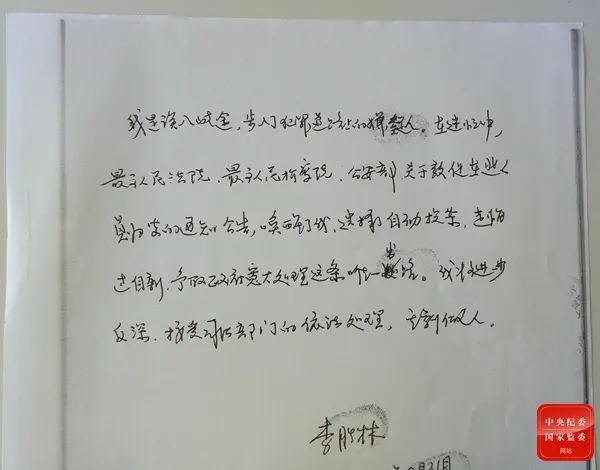 我是误入歧途,步入犯罪道路上的嫌疑人。在逃亡中,
最高人民法院、最高人民检察院、公安部关于敦促在逃人
员归案的通知公告,唤醒了我,选择了自动投案,走悔
过自新,争取政府宽大处理这条唯一出路。我将进步
反深,接受司法部门的依法处理,重新做人。
李 林
月21日
中央纪委
国家监委
网站